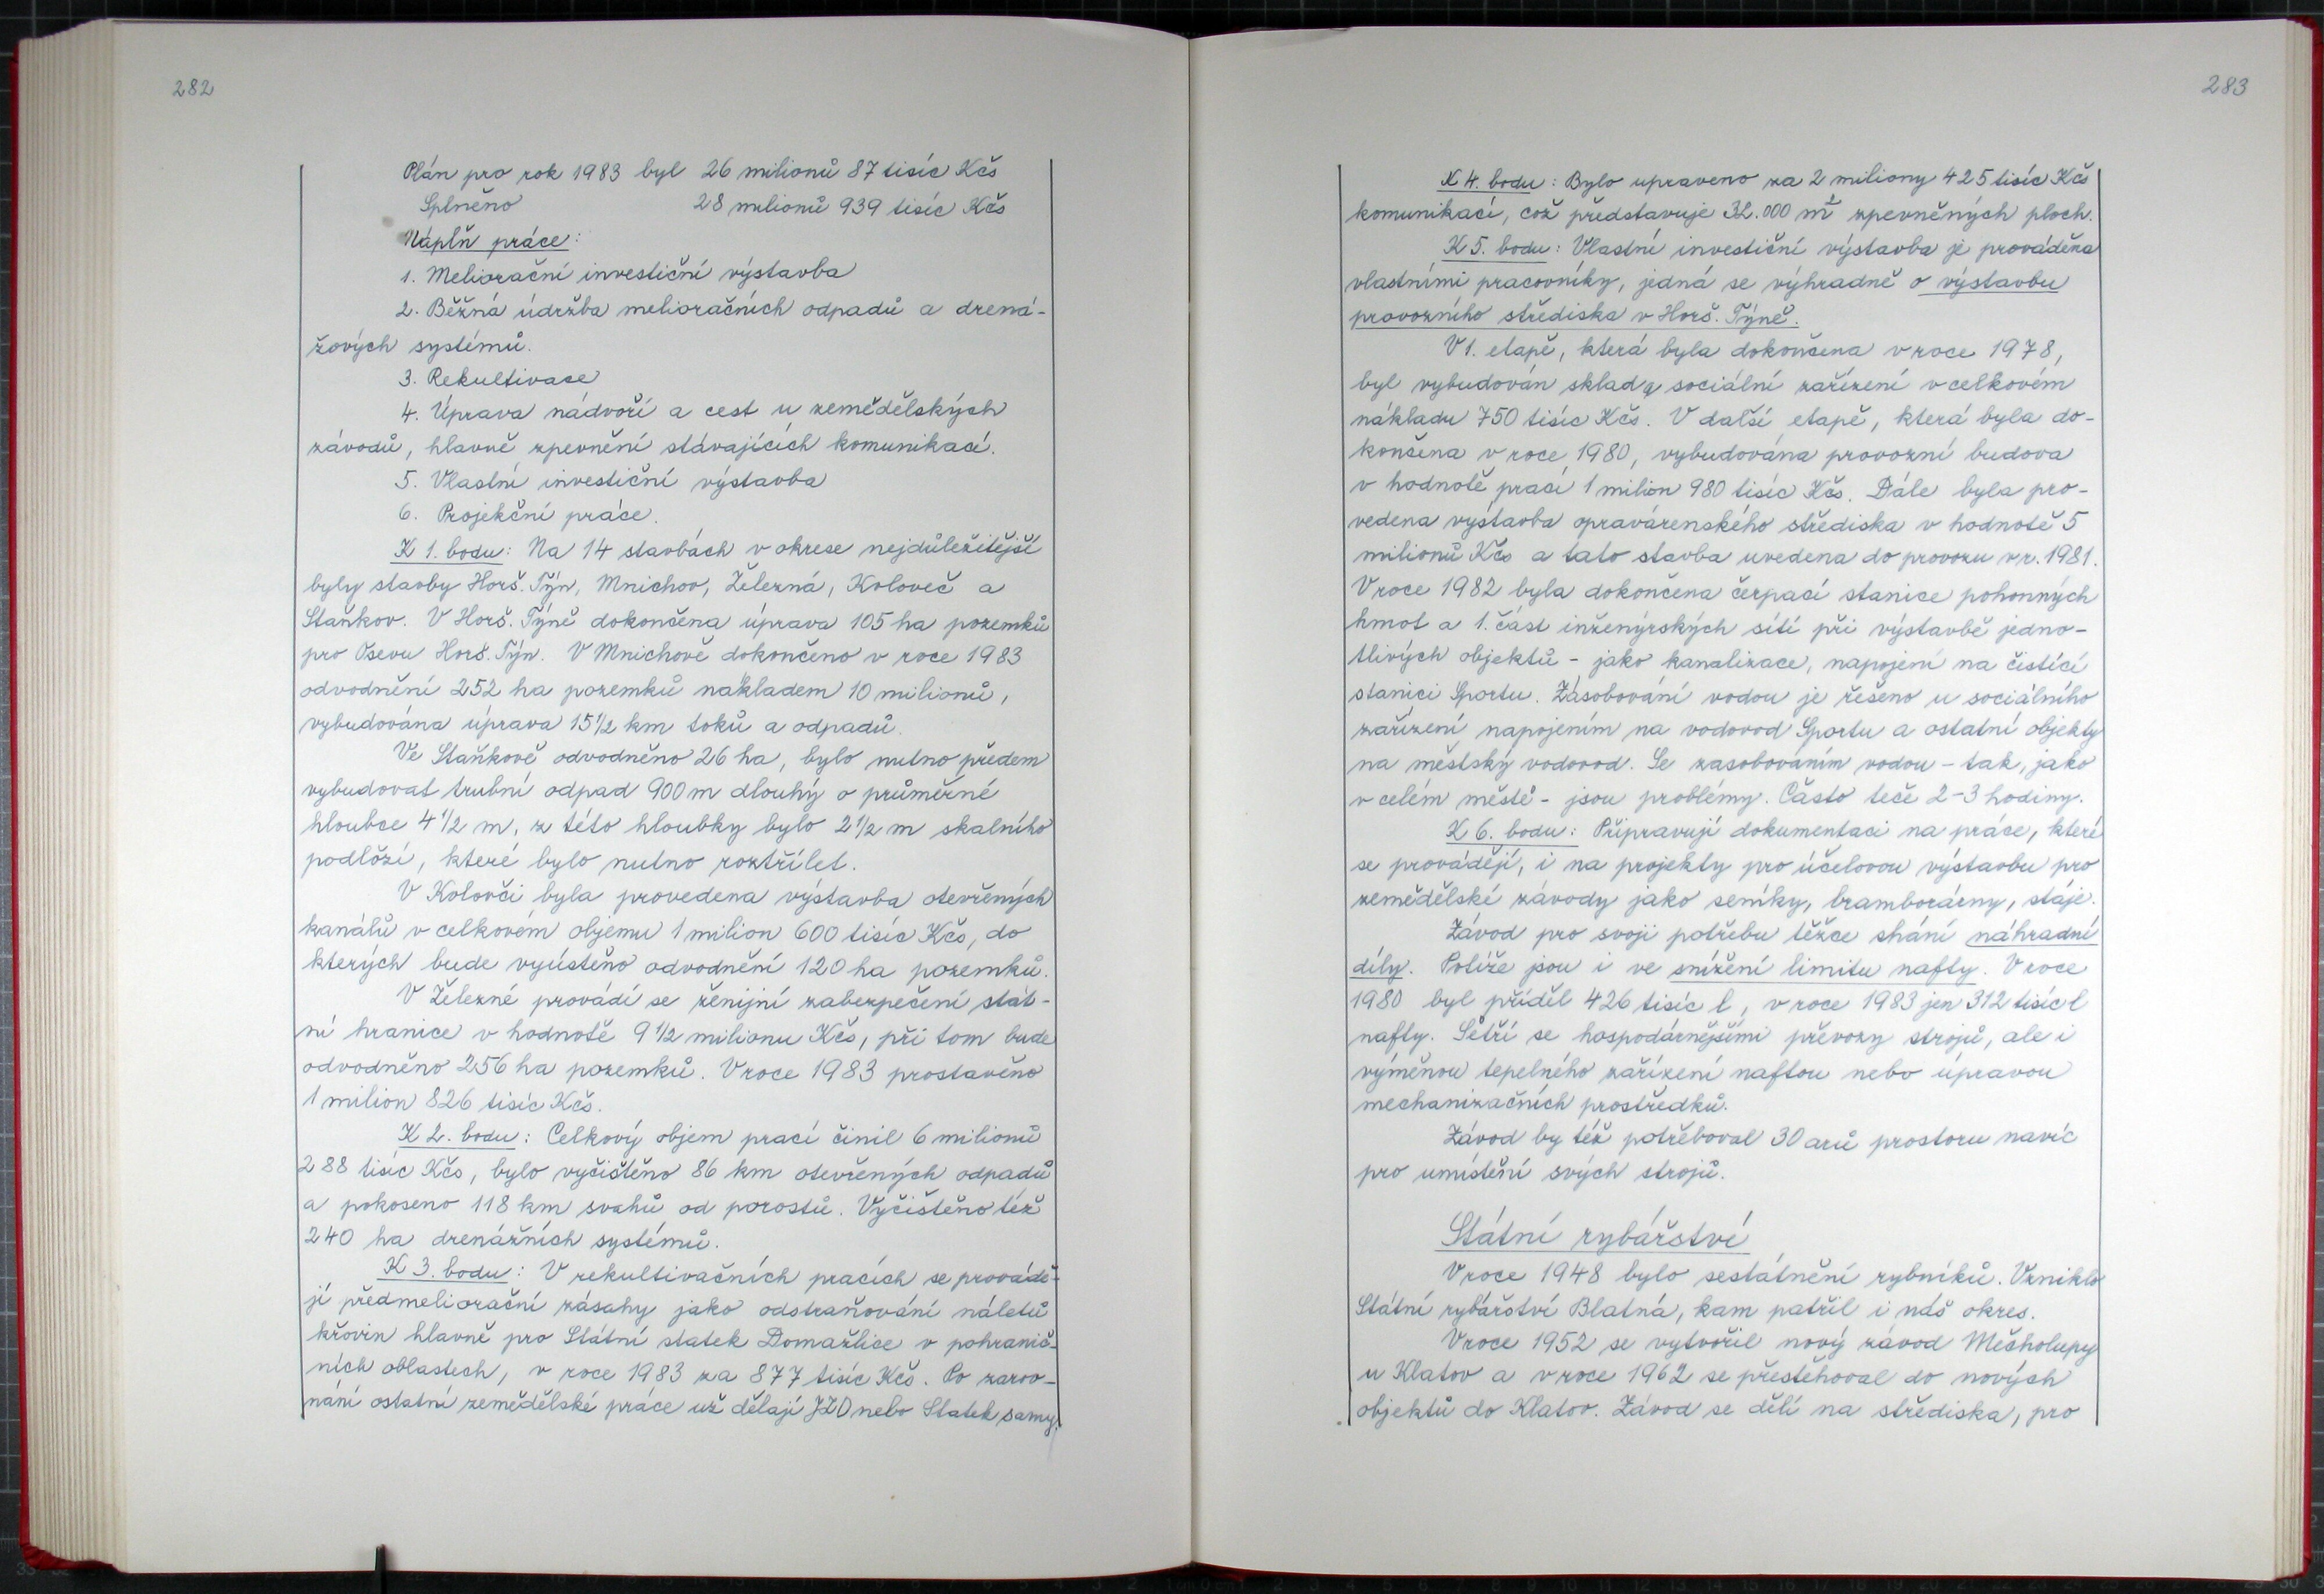 282
Plán pro rok 1983 byl 26 milionů 87 tisíc Kčs
Splněno 28 milionů 939 tisíc Kčs
Náplň práce:
1. Meliorační investiční výstavba
2. Běžná údržba melioračních odpadů a drená-
žových systémů.
3. Rekultivace
4. Úprava nádvoří a cest u zemědělských
závodů, hlavně zpevnění stávajících komunikací.
5. Vlastní investiční výstavba
6. Projekční práce.
K 1. bodu: Na 14 stavbách v okrese nejdůležitější
byly stavby Horš. Týn, Mnichov, Železná, Koloveč a
Staňkov. V Horš. Týně dokončena úprava 105 ha pozemků
pro Osevu Horš. Týn. V Mnichově dokončeno v roce 1983
odvodnění 252 ha pozemků nákladem 10 milionů,
vybudována úprava 15 1/2 km toků a odpadů.
Ve Staňkově odvodněno 26 ha, bylo nutno předem
vybudovat trubní odpad 900 m dlouhý o průměrné
hloubce 4 1/2 m, z této hloubky bylo 2 1/2 m skalního
podloží, které bylo nutno roztřílet.
V Kolovči byla provedena výstavba otevřených
kanálů v celkovém objemu 1 milion 600 tisíc Kčs, do
kterých bude vyústěno odvodnění 120 ha pozemků.
V Železné provádí se ženijní zabezpečení stát-
ní hranice v hodnotě 9 1/2 milionu Kčs, při tom bude
odvodněno 256 ha pozemků. V roce 1983 prostavěno
1 milion 826 tisíc Kčs.
K 2. bodu: Celkový objem prací činil 6 milionů
288 tisíc Kčs, bylo vyčištěno 86 km otevřených odpadů
a pokoseno 118 km svahů od porostů. Vyčištěno též
240 ha drenážních systémů.
K 3. bodu: V rekultivačních pracích se provádě-
jí předmeliorační zásahy jako odstraňování náletů
křovin hlavně pro Státní statek Domažlice v pohranič-
ních oblastech, v roce 1983 za 877 tisíc Kčs. Po zarov-
nání ostatní zemědělské práce už dělají JZD nebo Statek samy.
283
K 4. bodu: Bylo upraveno za 2 miliony 425 tisíc Kčs
komunikací, což představuje 32.000 m² zpevněných ploch.
K 5. bodu: Vlastní investiční výstavba je prováděna
vlastními pracovníky, jedná se výhradně o výstavbu
provozního střediska v Horš. Týně.
V 1. etapě, která byla dokončena v roce 1978,
byl vybudován sklad a sociální zařízení v celkovém
nákladu 750 tisíc Kčs. V další etapě, která byla do-
končena v roce 1980, vybudována provozní budova
v hodnotě prací 1 milion 980 tisíc Kčs. Dále byla pro-
vedena výstavba opravárenského střediska v hodnotě 5
milionů Kčs a tato stavba uvedena do provozu v r. 1981.
V roce 1982 byla dokončena čerpací stanice pohonných
hmot a 1. část inženýrských sítí při výstavbě jedno-
tlivých objektů - jako kanalizace, napojení na čistící
stanici Sportu. Zásobování vodou je řešeno u sociálního
zařízení napojením na vodovod Sportu a ostatní objekty
na městský vodovod. Se zásobováním vodou - tak, jako
v celém městě - jsou problémy. Často teče 2-3 hodiny.
K 6. bodu: Připravují dokumentaci na práce, které
se provádějí, i na projekty pro účelovou výstavbu pro
zemědělské závody jako seníky, bramborárny, stáje.
Závod pro svoji potřebu těžce shání náhradní
díly. Potíže jsou i ve snížení limitu nafty. V roce
1980 byl příděl 426 tisíc l, v roce 1983 jen 312 tisíc l
nafty. Šetří se hospodárnějšími převozy strojů, ale i
výměnou tepelného zařízení naftou nebo úpravou
mechanizačních prostředků.
Závod by též potřeboval 30 arů prostoru navíc
pro umístění svých strojů.
Státní rybářství
V roce 1948 bylo sestátnění rybníků. Vzniklo
Státní rybářství Blatná, kam patřil i náš okres.
V roce 1952 se vytvořil nový závod Měcholupy
u Klatov a v roce 1962 se přestěhoval do nových
objektů do Klatov. Závod se dělí na střediska, pro